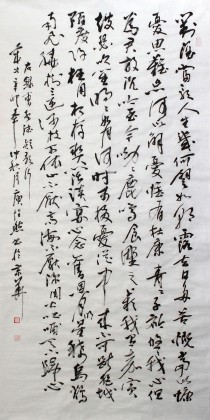 對酒當歌人生幾何譬如朝露去日苦多慨當以慷
憂思難忘何以解憂惟有杜康青青子衿悠悠我心但
為君故沈吟至今呦呦鹿鳴食野之苹我有嘉賓
鼓瑟吹笙明明如月何時可掇憂從中來不可斷絕越
陌度阡枉用相存契闊談讌心念舊恩月明星稀烏鵲
南飛繞樹三匝何枝可依山不厭高海不厭深周公吐哺天下歸心
曹孟德短歌行
歲次辛卯仲秋月於京華